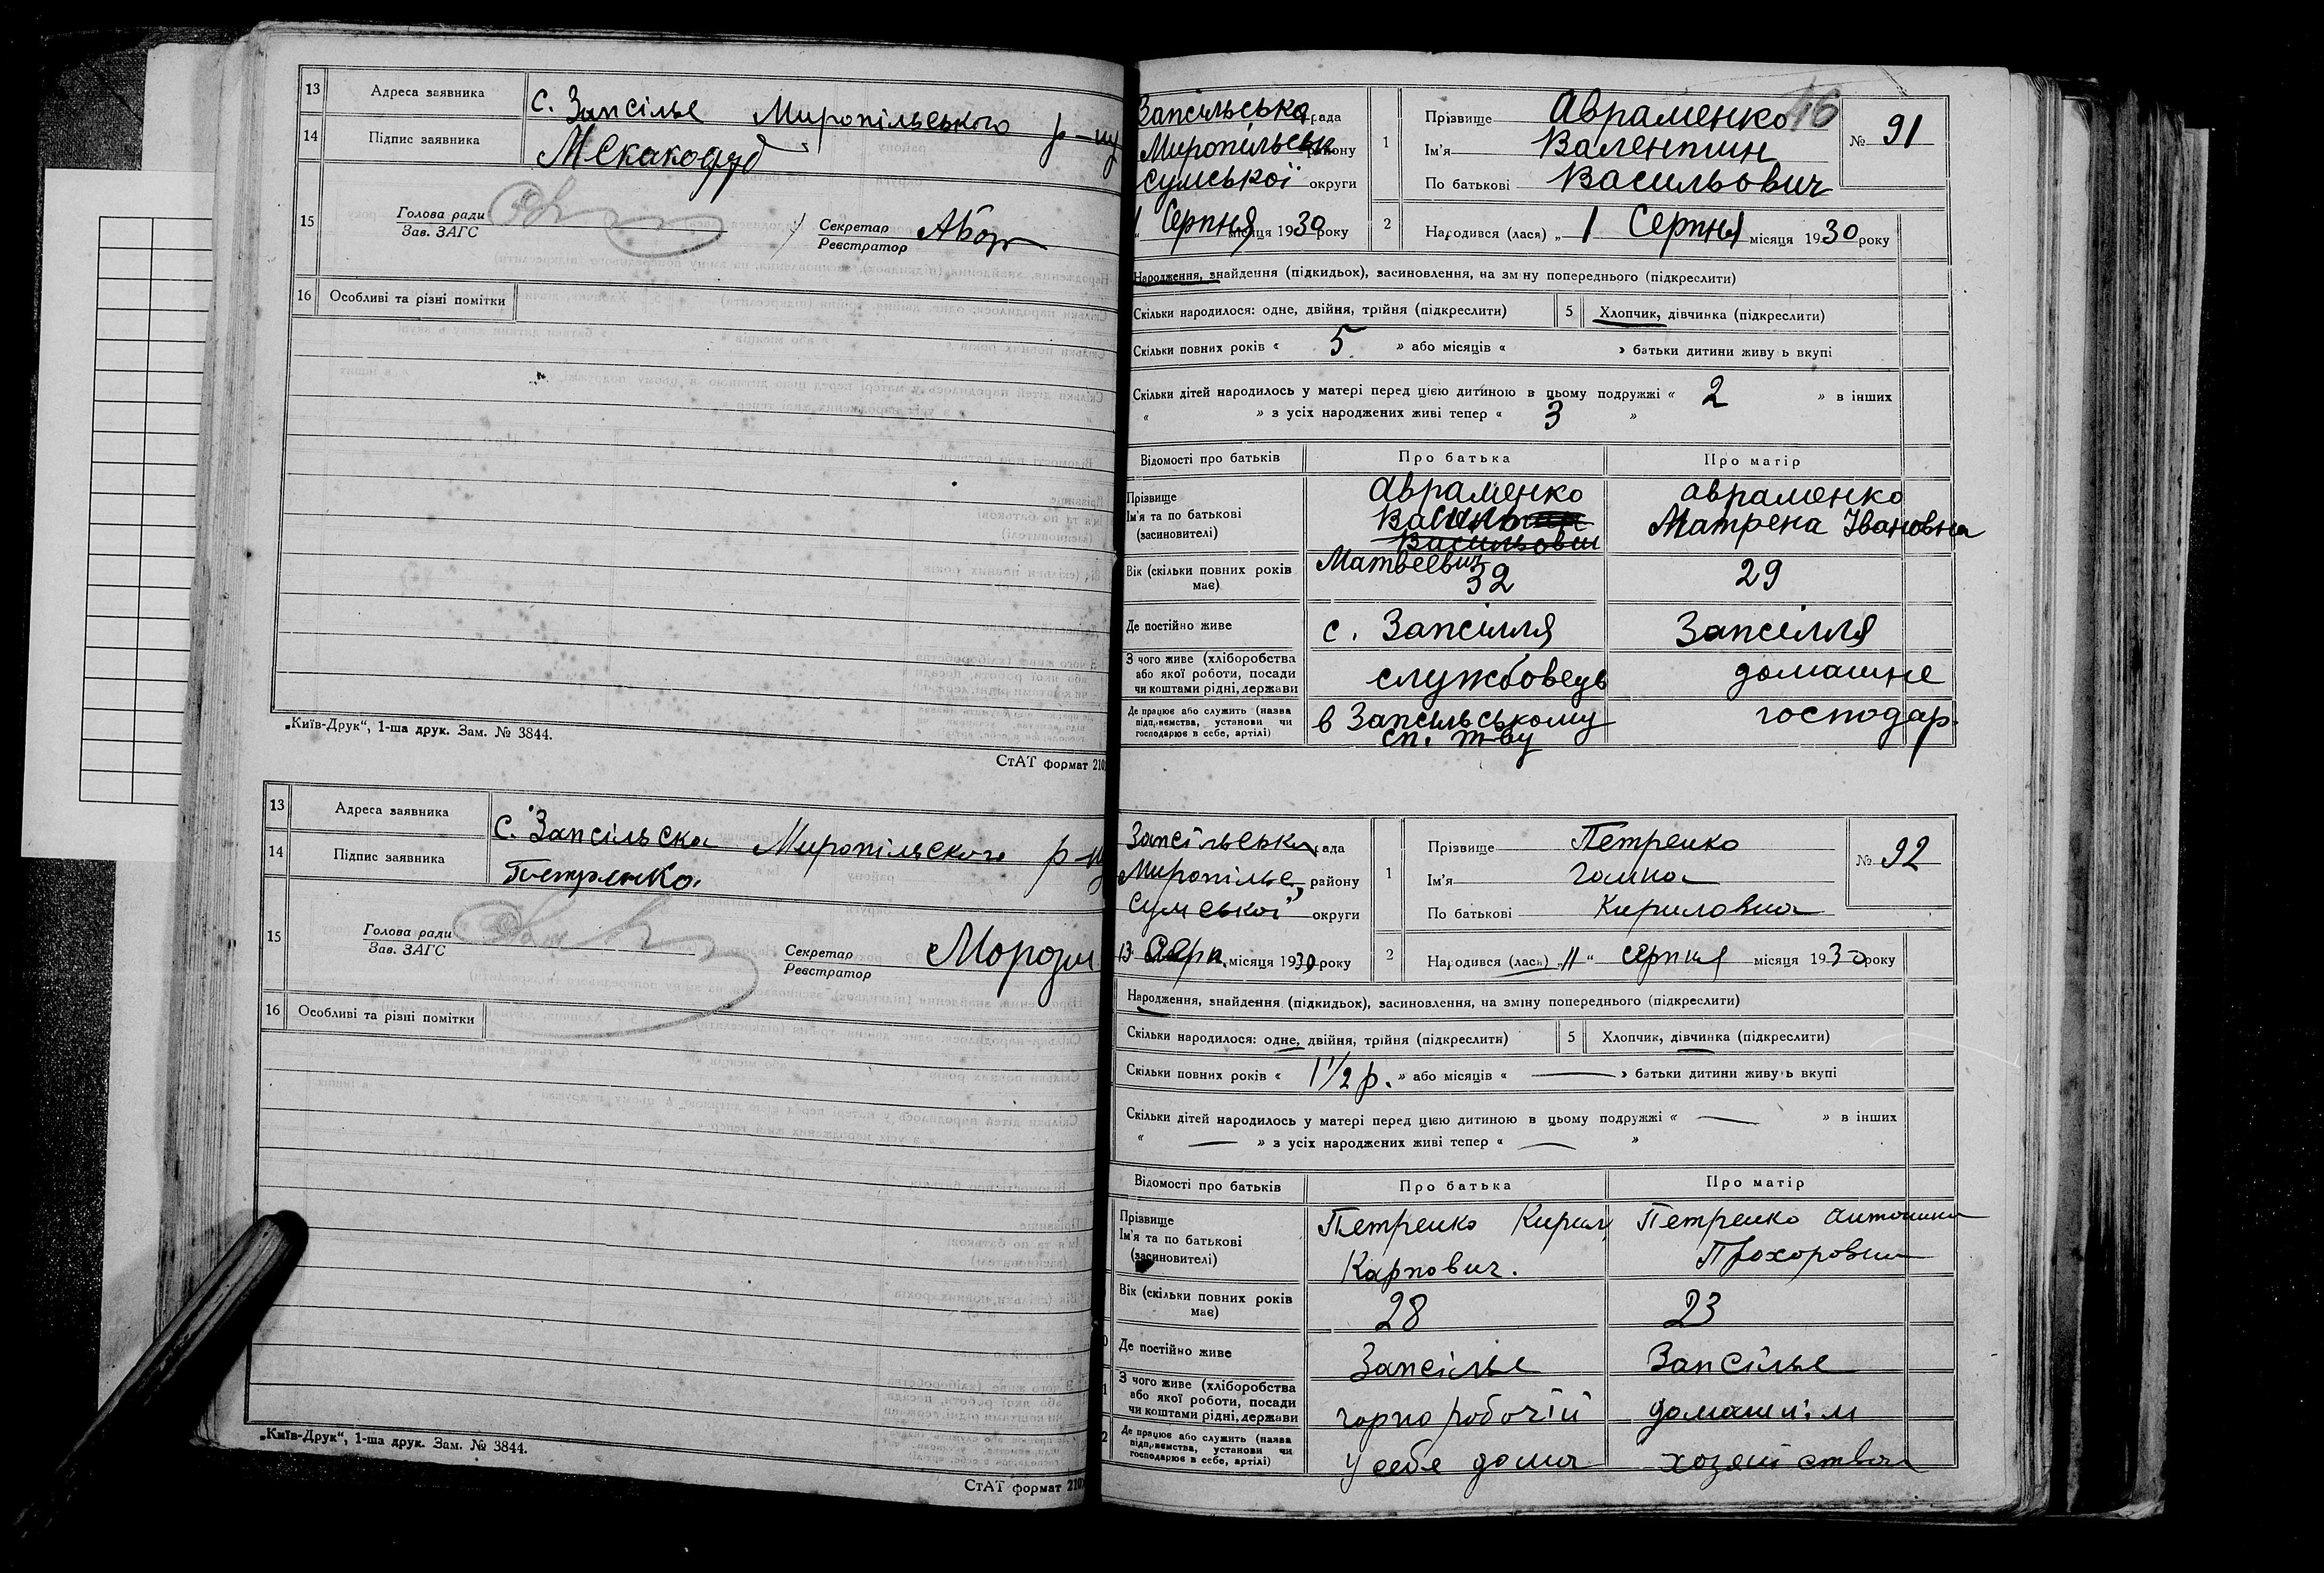 13 Адреса заявника с. Запсілье Миропільського р-ну
14 Підпис заявника
15 Голова ради
Зав. ЗАГС
Секретар
Реєстратор
16 Особливі та різні помітки
„Київ-Друк“, 1-ша друк. Зам. № 3844.
СтАТ формат 210
13 Адреса заявника с. Запсільска Миропільского р-ну
14 Підпис заявника Петренко.
15 Голова ради
Зав. ЗАГС
Секретар
Реєстратор
16 Особливі та різні помітки
„Київ-Друк“, 1-ша друк. Зам. № 3844.
СтАТ формат 210
Запсільська рада
Миропільськ району
Сумської округи
1 Серпня місяця 1930 року
1 Прізвище Авраменко
Ім'я Валентин
По батькові Васильович
№ 91
2 Народився (лася) „ 1 Серпня місяця 1930 року
Народження, знайдення (підкидьок), васиновлення, на зміну попереднього (підкреслити)
Скільки народилося: одне, двійня, трійня (підкреслити) 5 Хлопчик, дівчинка (підкреслити)
Скільки повних років « 5 » або місяців « » батьки дитини живу ь вкупі
Скільки дітей народилось у матері перед цією дитиною в цьому подружжі « 2 » в інших
« » з усіх народжених живі тепер « 3 »
Відомості про батьків Про батька Про матір
Прізвище Авраменко Авраменко
Ім'я та по батькові Василь Матрена Івановна
(засиновителі) Васильович
Матвеевич
Вік (скільки повних років 32 29
має)
Де постійно живе с. Запсілля Запсілля
З чого живе (хліборобства
або якої роботи, посади службовець домашне
чи коштами рідні, держави
Де працює або служить (назва
підприємства, установи чи в Запсильському господар.
господарює в себе, артілі) сп. т-ву
Запсільська рада
Миропільс, району
Сумської округи
13 Серп. місяця 1930 року
1 Прізвище Петренко
Ім'я Галина
По батькові Кириловна
№ 92
2 Народився (лася) „11“ серпня місяця 1930 року
Народження, знайдення (підкидьок), васиновлення, на зміну попереднього (підкреслити)
Скільки народилося: одне, двійня, трійня (підкреслити) 5 Хлопчик, дівчинка (підкреслити)
Скільки повних років « 1 1/2 р. » або місяців « — » батьки дитини живу ь вкупі
Скільки дітей народилось у матері перед цією дитиною в цьому подружжі « — » в інших
« — » з усіх народжених живі тепер « — »
Відомості про батьків Про батька Про матір
Прізвище Петренко Кирил Петренко Антонина
Ім'я та по батькові
(засиновителі) Карпович. Прохоровна
Вік (скільки повних років 28 23
має)
Де постійно живе Запсілье Запсілье
З чого живе (хліборобства
або якої роботи, посади
чи коштами рідні, держави чорноробочій домашнім
Де працює або служить (назва
підприємства, установи чи
господарює в себе, артілі) у себе дома хозяйством